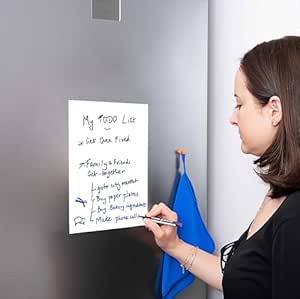 My TODO List
Get Oven Fixed
Family & Friends
Get-Together
goto city market
Buy paper plates
Buy Bakery ingredients
Make phone call